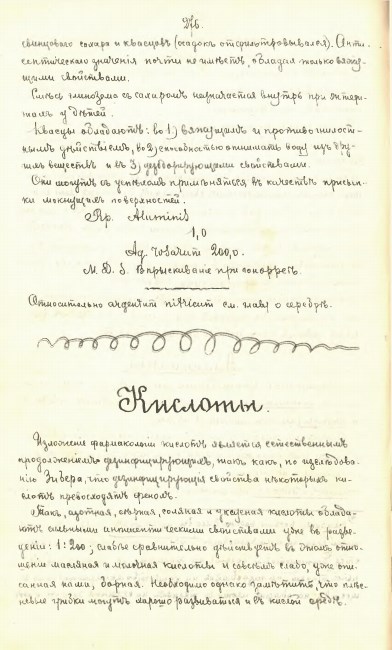 276.
свинцоваго сахара и квасцовъ (осадокъ отфильтровывался). Анти-
септическаго значенія почти не имѣетъ, обладая только вяжу-
щими свойствами.
Смѣсь глинозема съ сахаромъ назначается внутрь при энтери-
тахъ у дѣтей.
Квасцы обладаютъ: во 1) вяжущимъ и противогнилост-
нымъ дѣйствіемъ, во 2) способностью отнимать воду изъ дру-
гихъ веществъ и въ 3) дезодорирующими свойствами.
Они могутъ съ успѣхомъ примѣняться въ качествѣ присып-
ки мокнущихъ поверхностей.
Rp. Aluminis
1,0
Aq. 200,0.
M. D. S. Впрыскиваніе при гонорреѣ.
Относительно см. главу о серебрѣ.
Кислоты.
Изложеніе фармакологіи кислотъ является естественнымъ
продолженіемъ дезинфицирующихъ, такъ какъ, по изслѣдова-
нію Зибера, что дезинфицирующія свойства нѣкоторыхъ ки-
слотъ превосходятъ фенолъ.
Такъ, азотная, сѣрная, соляная и уксусная кислоты облада-
ютъ сильными антисептическими свойствами уже въ разве-
деніи: 1:200; слабѣе сравнительно дѣйствуетъ въ этомъ отно-
шеніи масляная и молочная кислоты и совсѣмъ слабо, уже опи-
санная нами, борная. Необходимо однако замѣтить, что плѣс-
невые грибки могутъ хорошо развиваться и въ кислой средѣ.